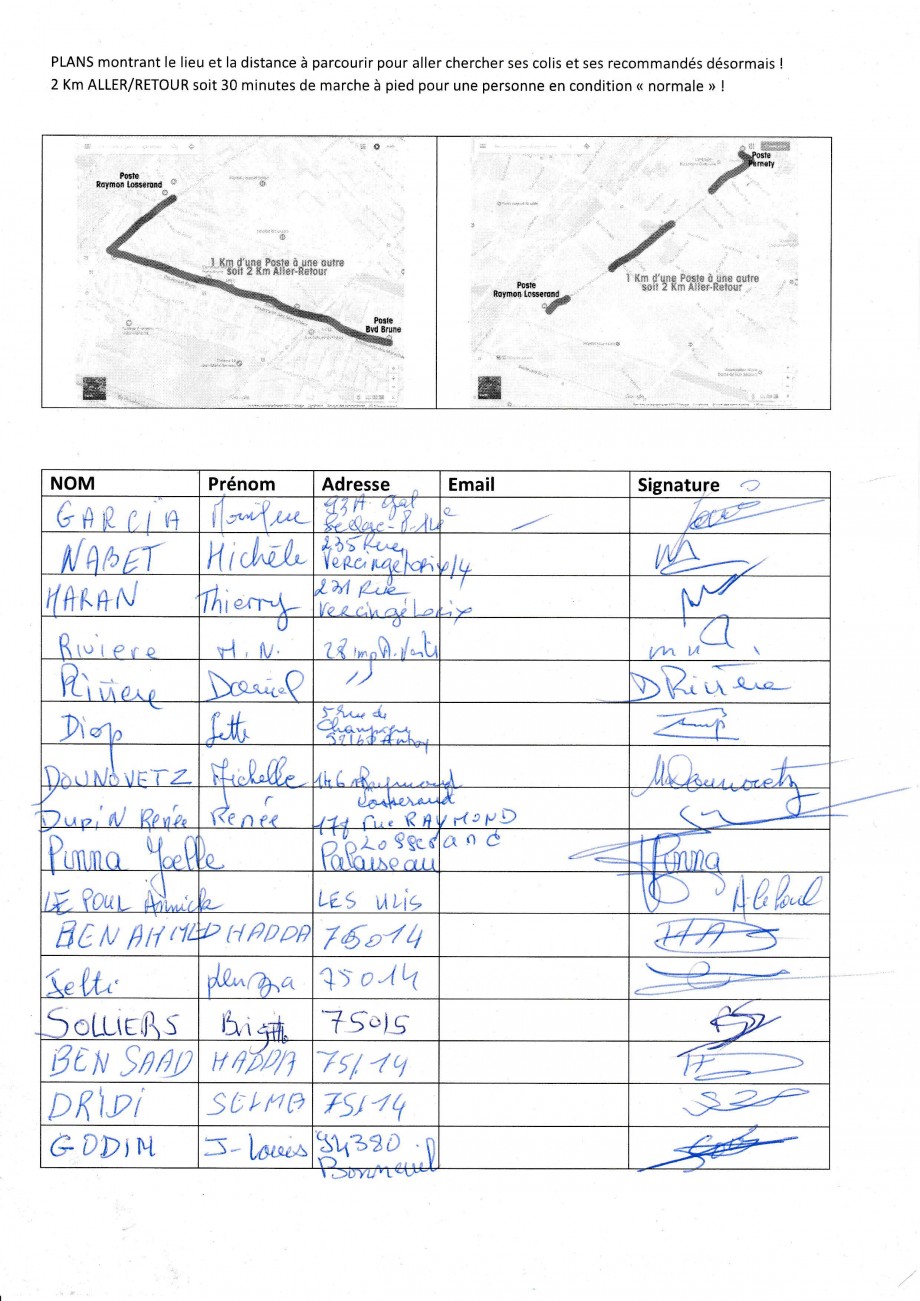 PLANS montrant le lieu et la distance à parcourir pour aller chercher ses colis et ses recommandés désormais !
2 Km ALLER/RETOUR soit 30 minutes de marche à pied pour une personne en condition « normale » !
Poste
Raymon Losserand
1 Km d'une Poste à une autre
soit 2 Km Aller-Retour
Poste
Bvd Brune
Poste
Pernety
1 Km d'une Poste à une autre
soit 2 Km Aller-Retour
Poste
Raymon Losserand
NOM Prénom Adresse Email Signature
GARCÏA 93 A. Gal
Leclerc
NABET Michèle 235 Rue
Vercingétorix/14
HARAN Thierry 231 Rue
Vercingétorix
Riviere M. N. 28 imp
Rivière Daniel " D Rivière
Diop 5 rue de
Champigny
Antony
DOUNOVETZ Michelle 146 Raymond
Losserand
M Dounovetz
DUPIN Renée Renée 177 rue RAYMOND
Losserand
Pinna Joelle Palaiseau Pinna
LE POUL Annick LES ULIS A le Poul
BEN AHMED HADDA 75014 HA
75014
SOLLIERS 75015
BEN SAAD HADDA 75/14
DRIDI SELMA 75/14
GODIN J-Louis 94380
Bonneuil